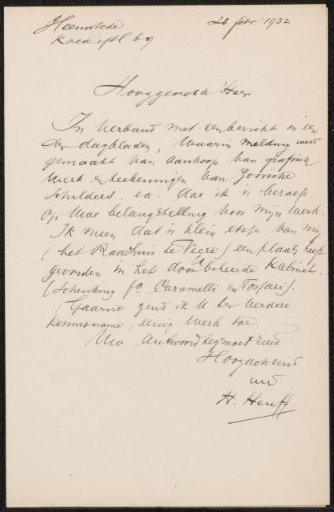 Heemstede
26 febr. 1932
Hooggeachte Heer
In verband met een bericht in een
der dagbladen, waarin melding werd
gemaakt van aankoop van grafisch
werk en teekeningen van Gooische
schilders, e.a. doe ik 'n beroep
op Uwe belangstelling voor mijn werk
Ik meen dat 'n klein etsje van mij
(het Raadhuis te Veere) een plaats heeft
gevonden in het door U beheerde Kabinet
(Schenking Fa Caramelli en Tessaro).
Gaarne zend ik U ter verdere
kennisname, eenig werk toe.
Uw antwoord tegemoet ziend
Hoogachtend
H. Heuff